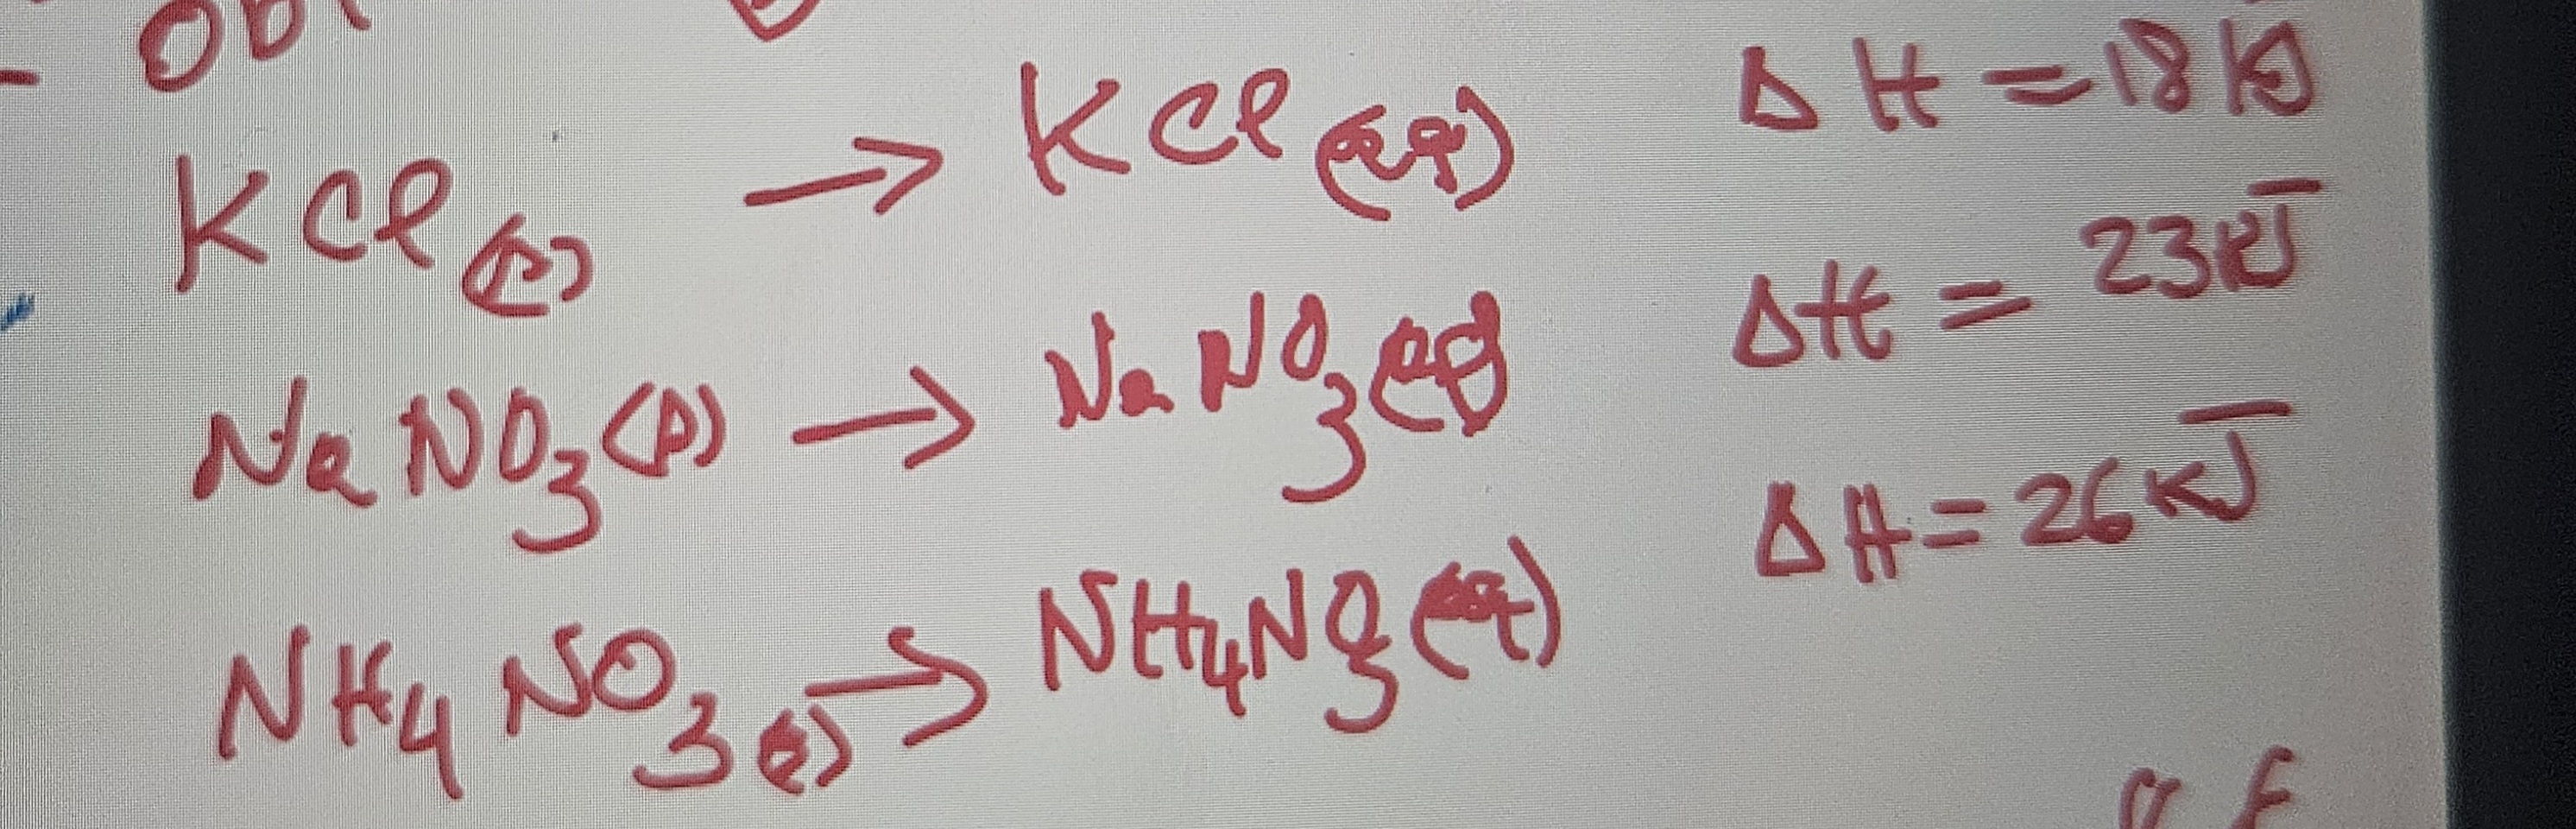 KCl(s) → KCl(aq) ΔH = 18 kJ
NaNO3(s) → NaNO3(aq) ΔH = 23 kJ
NH4NO3(s) → NH4NO3(aq) ΔH = 26 kJ